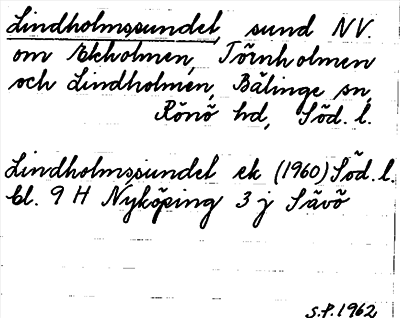 Lindholmssundet, sund NV.
om Ekholmen, Törnholmen
och Lindholmen, Bälinge sn,
Rönö hd, Söd. l.
Lindholmssundet ek (1960) Söd. l.
bl. 9 H Nyköping 3 j Sävö
S.P. 1962